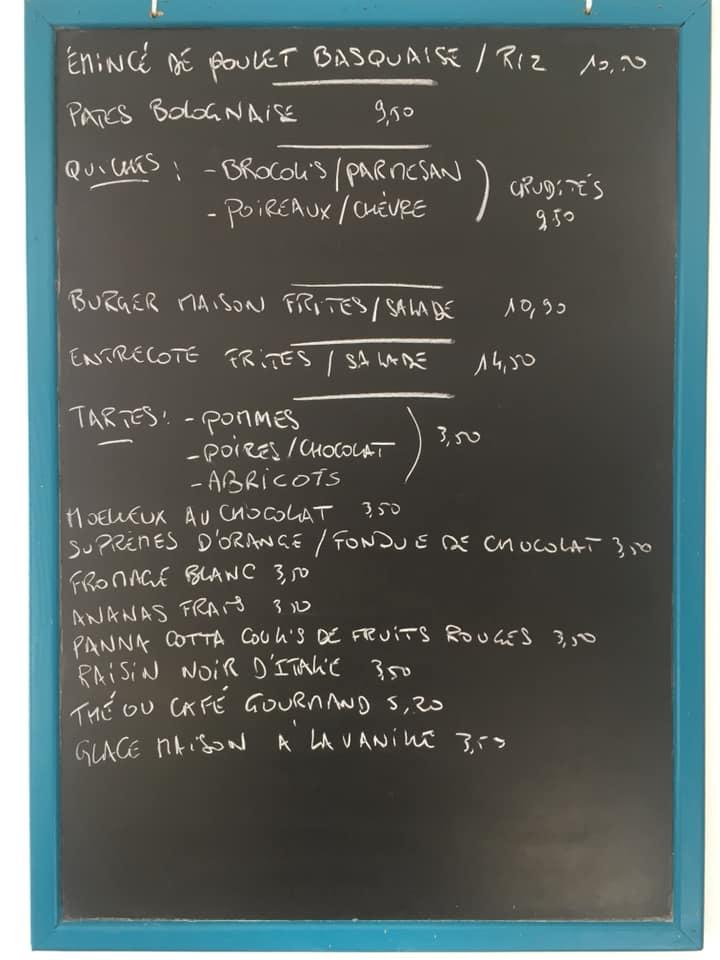 ÉMINCÉ DE POULET BASQUAISE / RIZ 10,20
PATES BOLOGNAISE 9,50
QUICHES : - BROCOLIS / PARMESAN
- POIREAUX / CHÈVRE
CRUDITÉS
9,50
BURGER MAISON FRITES / SALADE 10,90
ENTRECOTE FRITES / SALADE 14,50
TARTES : - POMMES
- POIRES / CHOCOLAT 3,50
- ABRICOTS
MOELLEUX AU CHOCOLAT 3,50
SUPRÈMES D'ORANGE / FONDUE DE CHOCOLAT 3,50
FROMAGE BLANC 3,50
ANANAS FRAIS 3,50
PANNA COTTA COULIS DE FRUITS ROUGES 3,50
RAISIN NOIR D'ITALIE 3,50
THÉ OU CAFÉ GOURMAND 5,20
GLACE MAISON À LA VANILLE 3,50